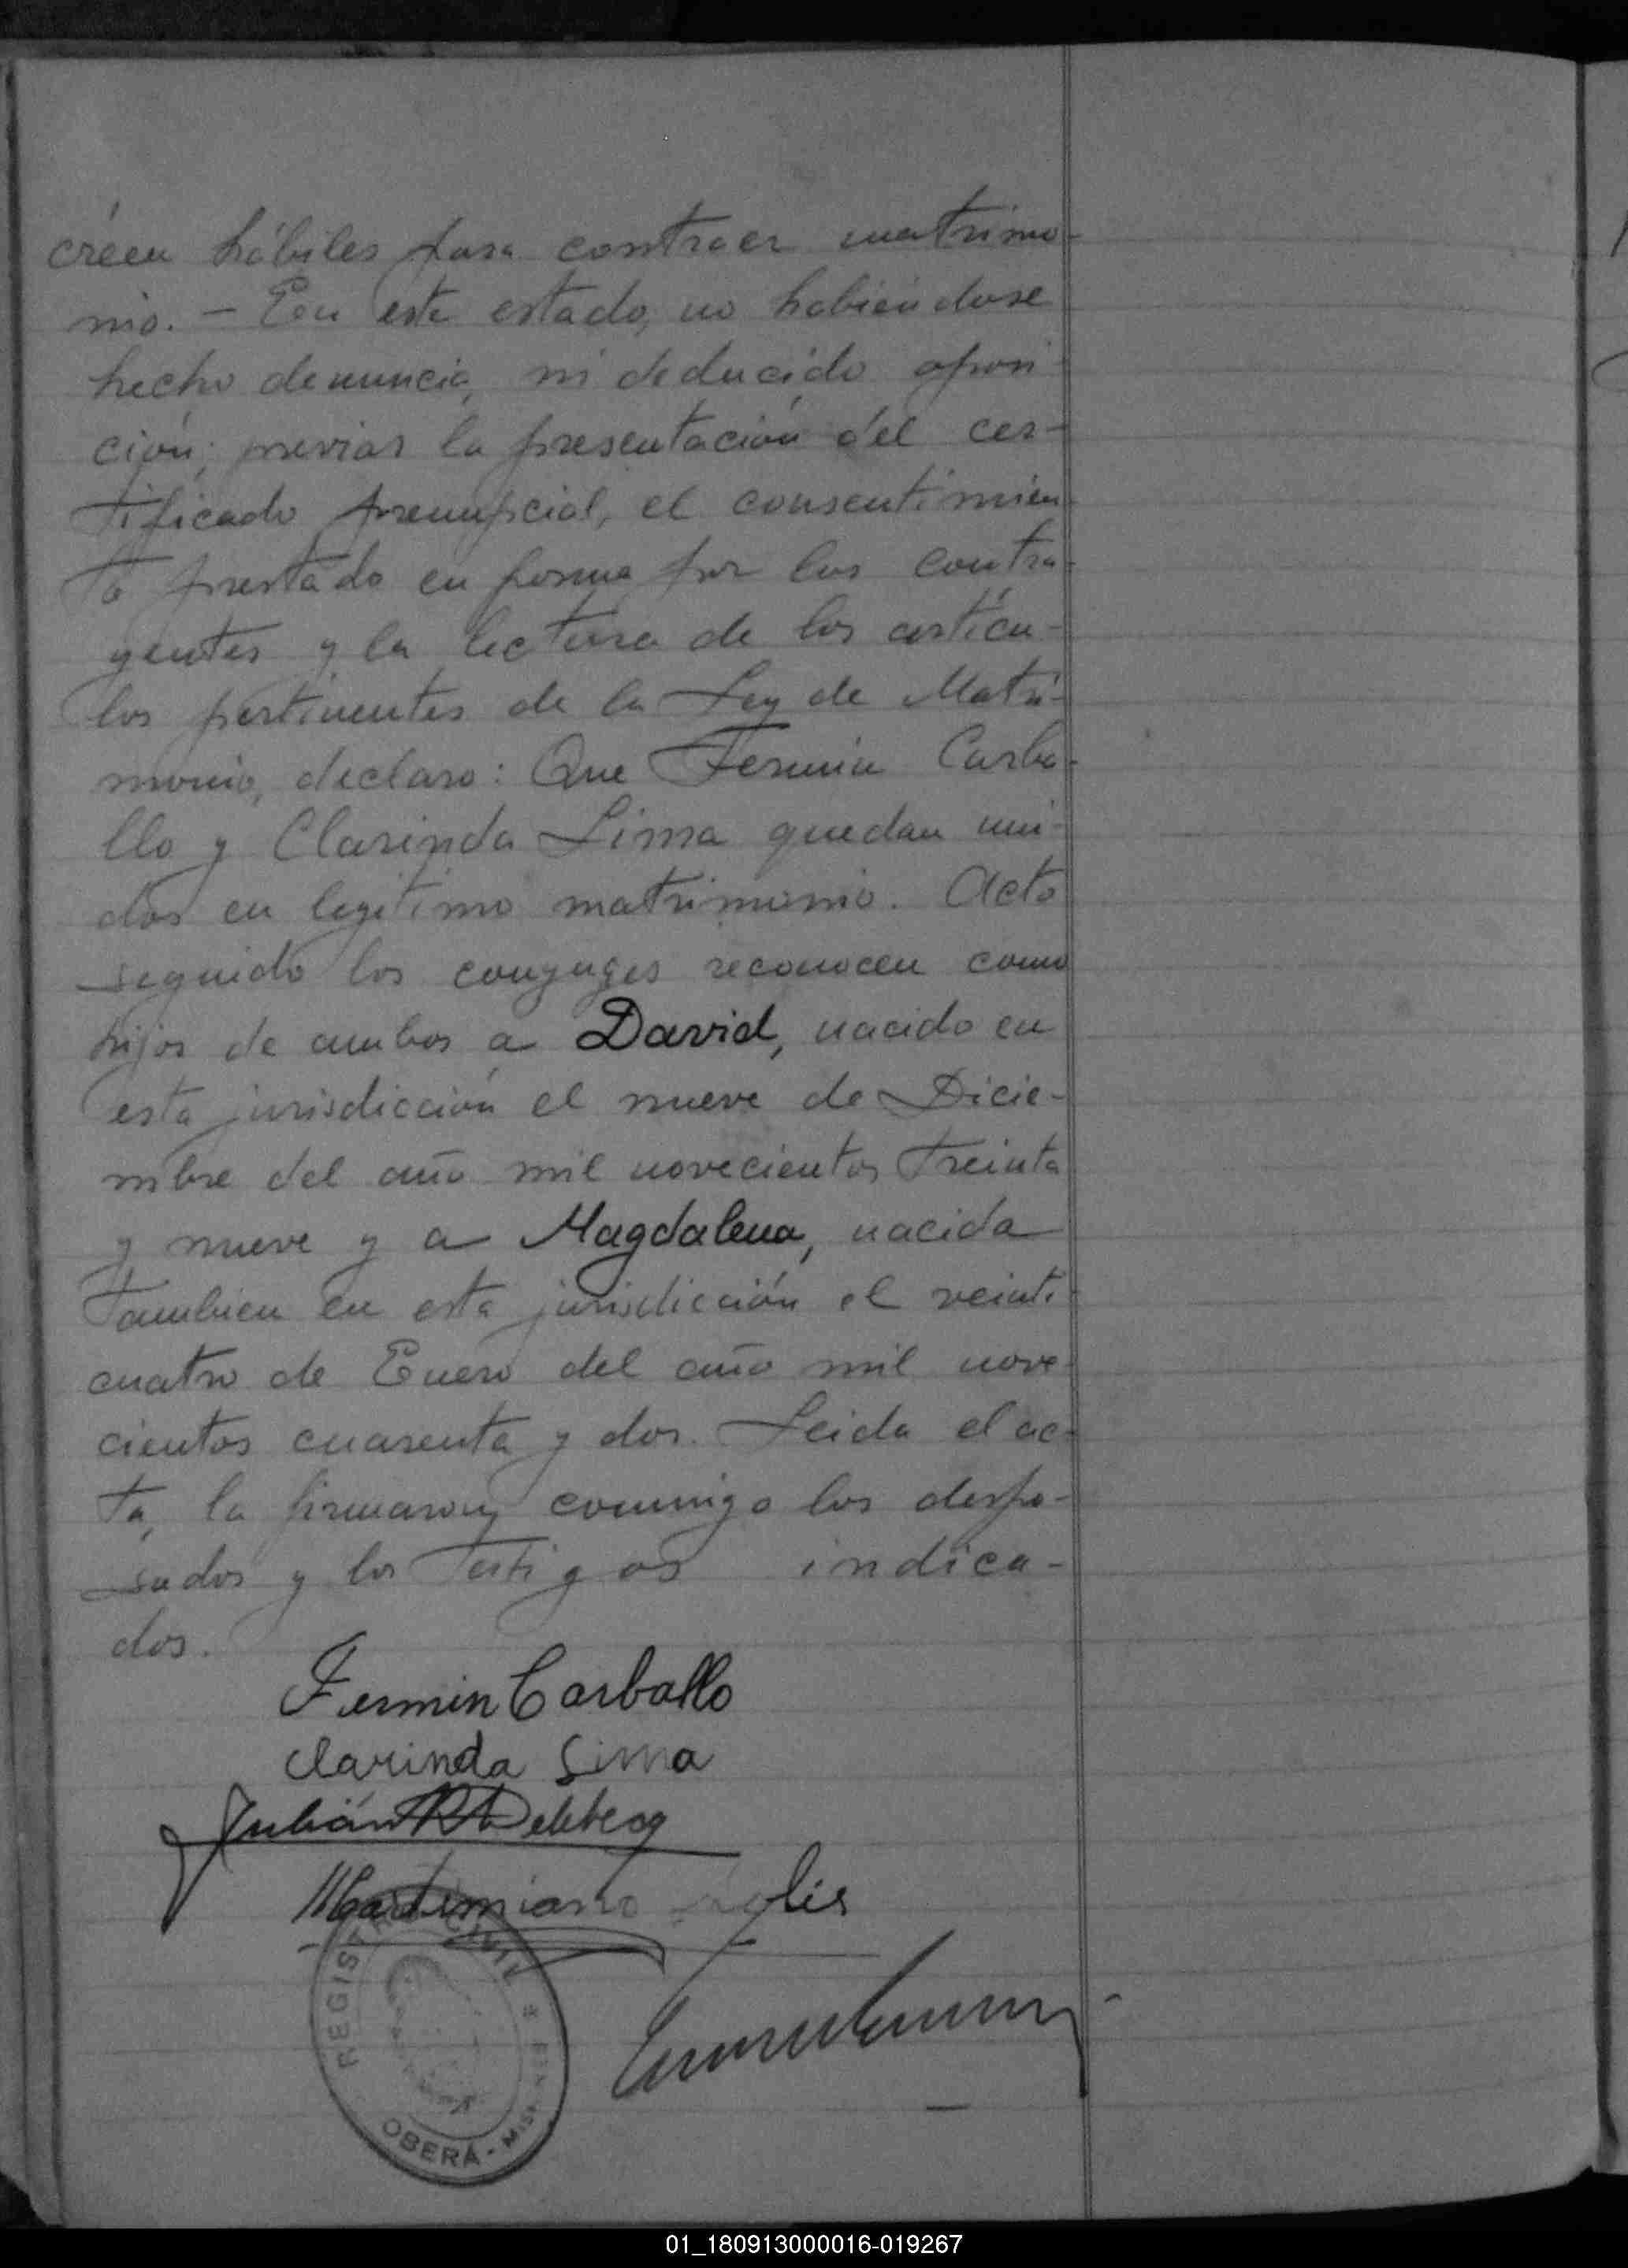 créen hábiles para contraer matrimo-
nio. - En este estado, no habiéndose
hecho denuncia, ni deducido oposi-
ción; previas la presentación del cer-
tificado prenupcial, el consentimien-
to prestado en forma por los contra-
yentes y la lectura de los artícu-
los pertinentes de la Ley de Matri-
monio, declaro: Que Fermin Carba-
llo y Clarinda Lima quedan uni-
dos en legitimo matrimonio. Acto
seguido los conyuges reconocen como
hijos de ambos a David, nacido en
esta jurisdicción el nueve de Dicie-
mbre del año mil novecientos treinta
y nueve y a Magdalena, nacida
tambien en esta jurisdicción el veinti
cuatro de Enero del año mil nove-
cientos cuarenta y dos. Leida el ac-
ta, la firmaron conmigo los despo-
sados y los testigos indica-
dos.
Fermin Carballo
Clarinda Lima
Julián
Martimiano
REGISTRO CIVIL
OBERÁ - MISIONES
01_180913000016-019267